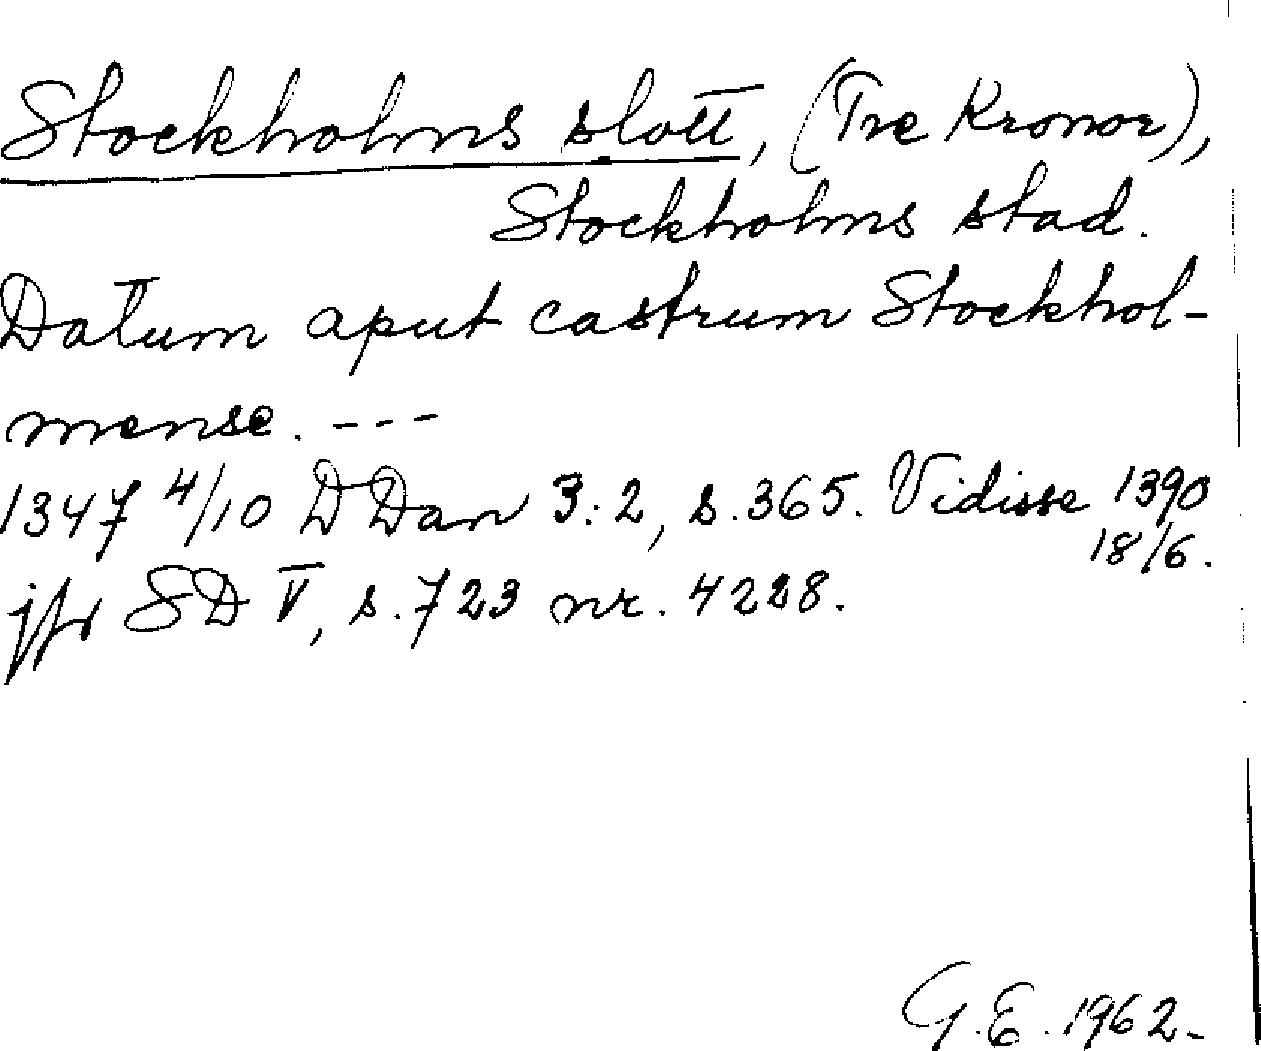 Stockholms slott, (Tre Kronor),
Stockholms stad.
Datum aput castrum Stockhol-
mense. ---
1347 4/10 DDan 3:2, s.365. Vidisse 1390
18/6.
jfr SD V, s.723 nr. 4228.
G.E. 1962.